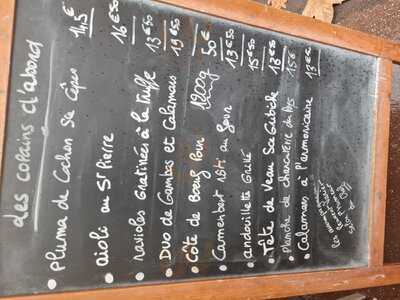 les copains d'abord
• Pluma de Cochon Sce Cèpes 14,5€
• aioli au St Pierre 16€50
• ravioles Gratinées à la truffe 13€50
• Duo de Gambas et Calamars 19€50
• Côte de Bœuf Pour 1200g 50€
• Camembert rôti au four 13€50
• andouillette Grillé 15€50
• Tête de Veau Sce Gribiche 18€
• Planche de charcuterie du Pays 15€
• Calamars à l'armoricaine 13€